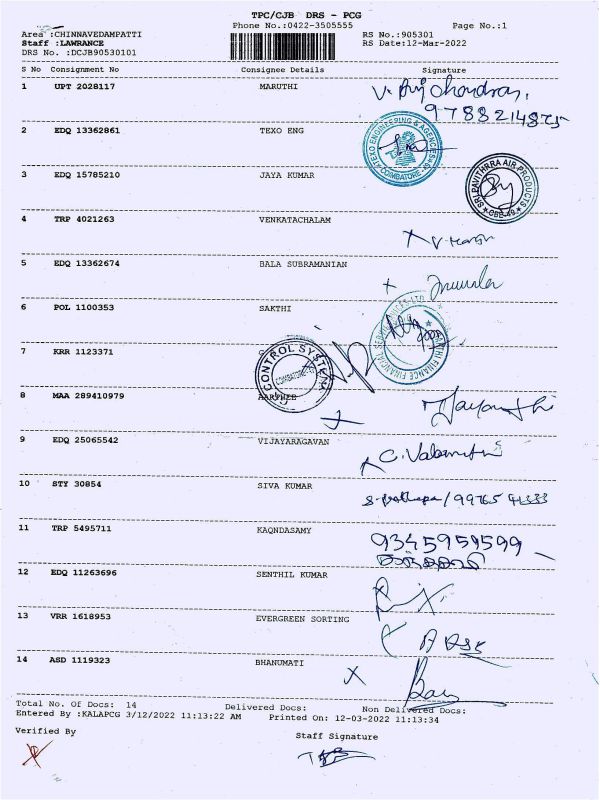 TPC/CJB DRS - PCG
Phone No.:0422-3505555 Page No.:1
Area :CHINNAVEDAMPATTI RS No.:905301
Staff :LAWRANCE RS Date:12-Mar-2022
DRS No. :DCJB90530101
S No Consignment No Consignee Details Signature
1 UPT 2028117 MARUTHI
9788214875
2 EDQ 13362861 TEXO ENG
TEXO ENGINEERING & AGENCIES
COIMBATORE
3 EDQ 15785210 JAYA KUMAR
SRI PAVITHRRA AIR PRODUCTS
CBE-49
4 TRP 4021263 VENKATACHALAM
5 EDQ 13362674 BALA SUBRAMANIAN
6 POL 1100353 SAKTHI
FINANCE FINANCIAL SERVICES LTD
7 KRR 1123371
CONTROL SYSTEM
COIMBATORE
8 MAA 289410979
Jayanthi
9 EDQ 25065542 VIJAYARAGAVAN
10 STY 30854 SIVA KUMAR
11 TRP 5495711 KAQNDASAMY
9345959599
12 EDQ 11263696 SENTHIL KUMAR
13 VRR 1618953 EVERGREEN SORTING
14 ASD 1119323 BHANUMATI
Total No. Of Docs: 14 Delivered Docs: Non Delivered Docs:
Entered By :KALAPCG 3/12/2022 11:13:22 AM Printed On: 12-03-2022 11:13:34
Verified By Staff Signature